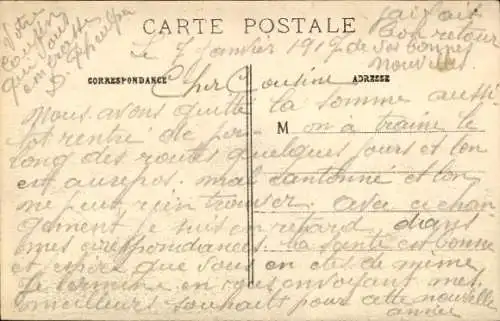 CARTE POSTALE
Le 7 janvier 1917
CORRESPONDANCE
ADRESSE
Cher Cousine
Nous avons quitté la somme aussi
tot rentré de per M on à trainé le
long des routes quelques jours et l'on
est au repos. mal cantonné et l'on
ne peut rien trouver. avec ce chan
gement je suis en retard dans
mes correspondances. la santé est bonne
et espère que vous en etes de même
Je termine en vous envoyant mes
meilleurs souhaits pour cette nouvelle
année
j'ai fait
bon retour
de vos bonnes
nouvelles.
Votre
cousin
qui vous
embrasse